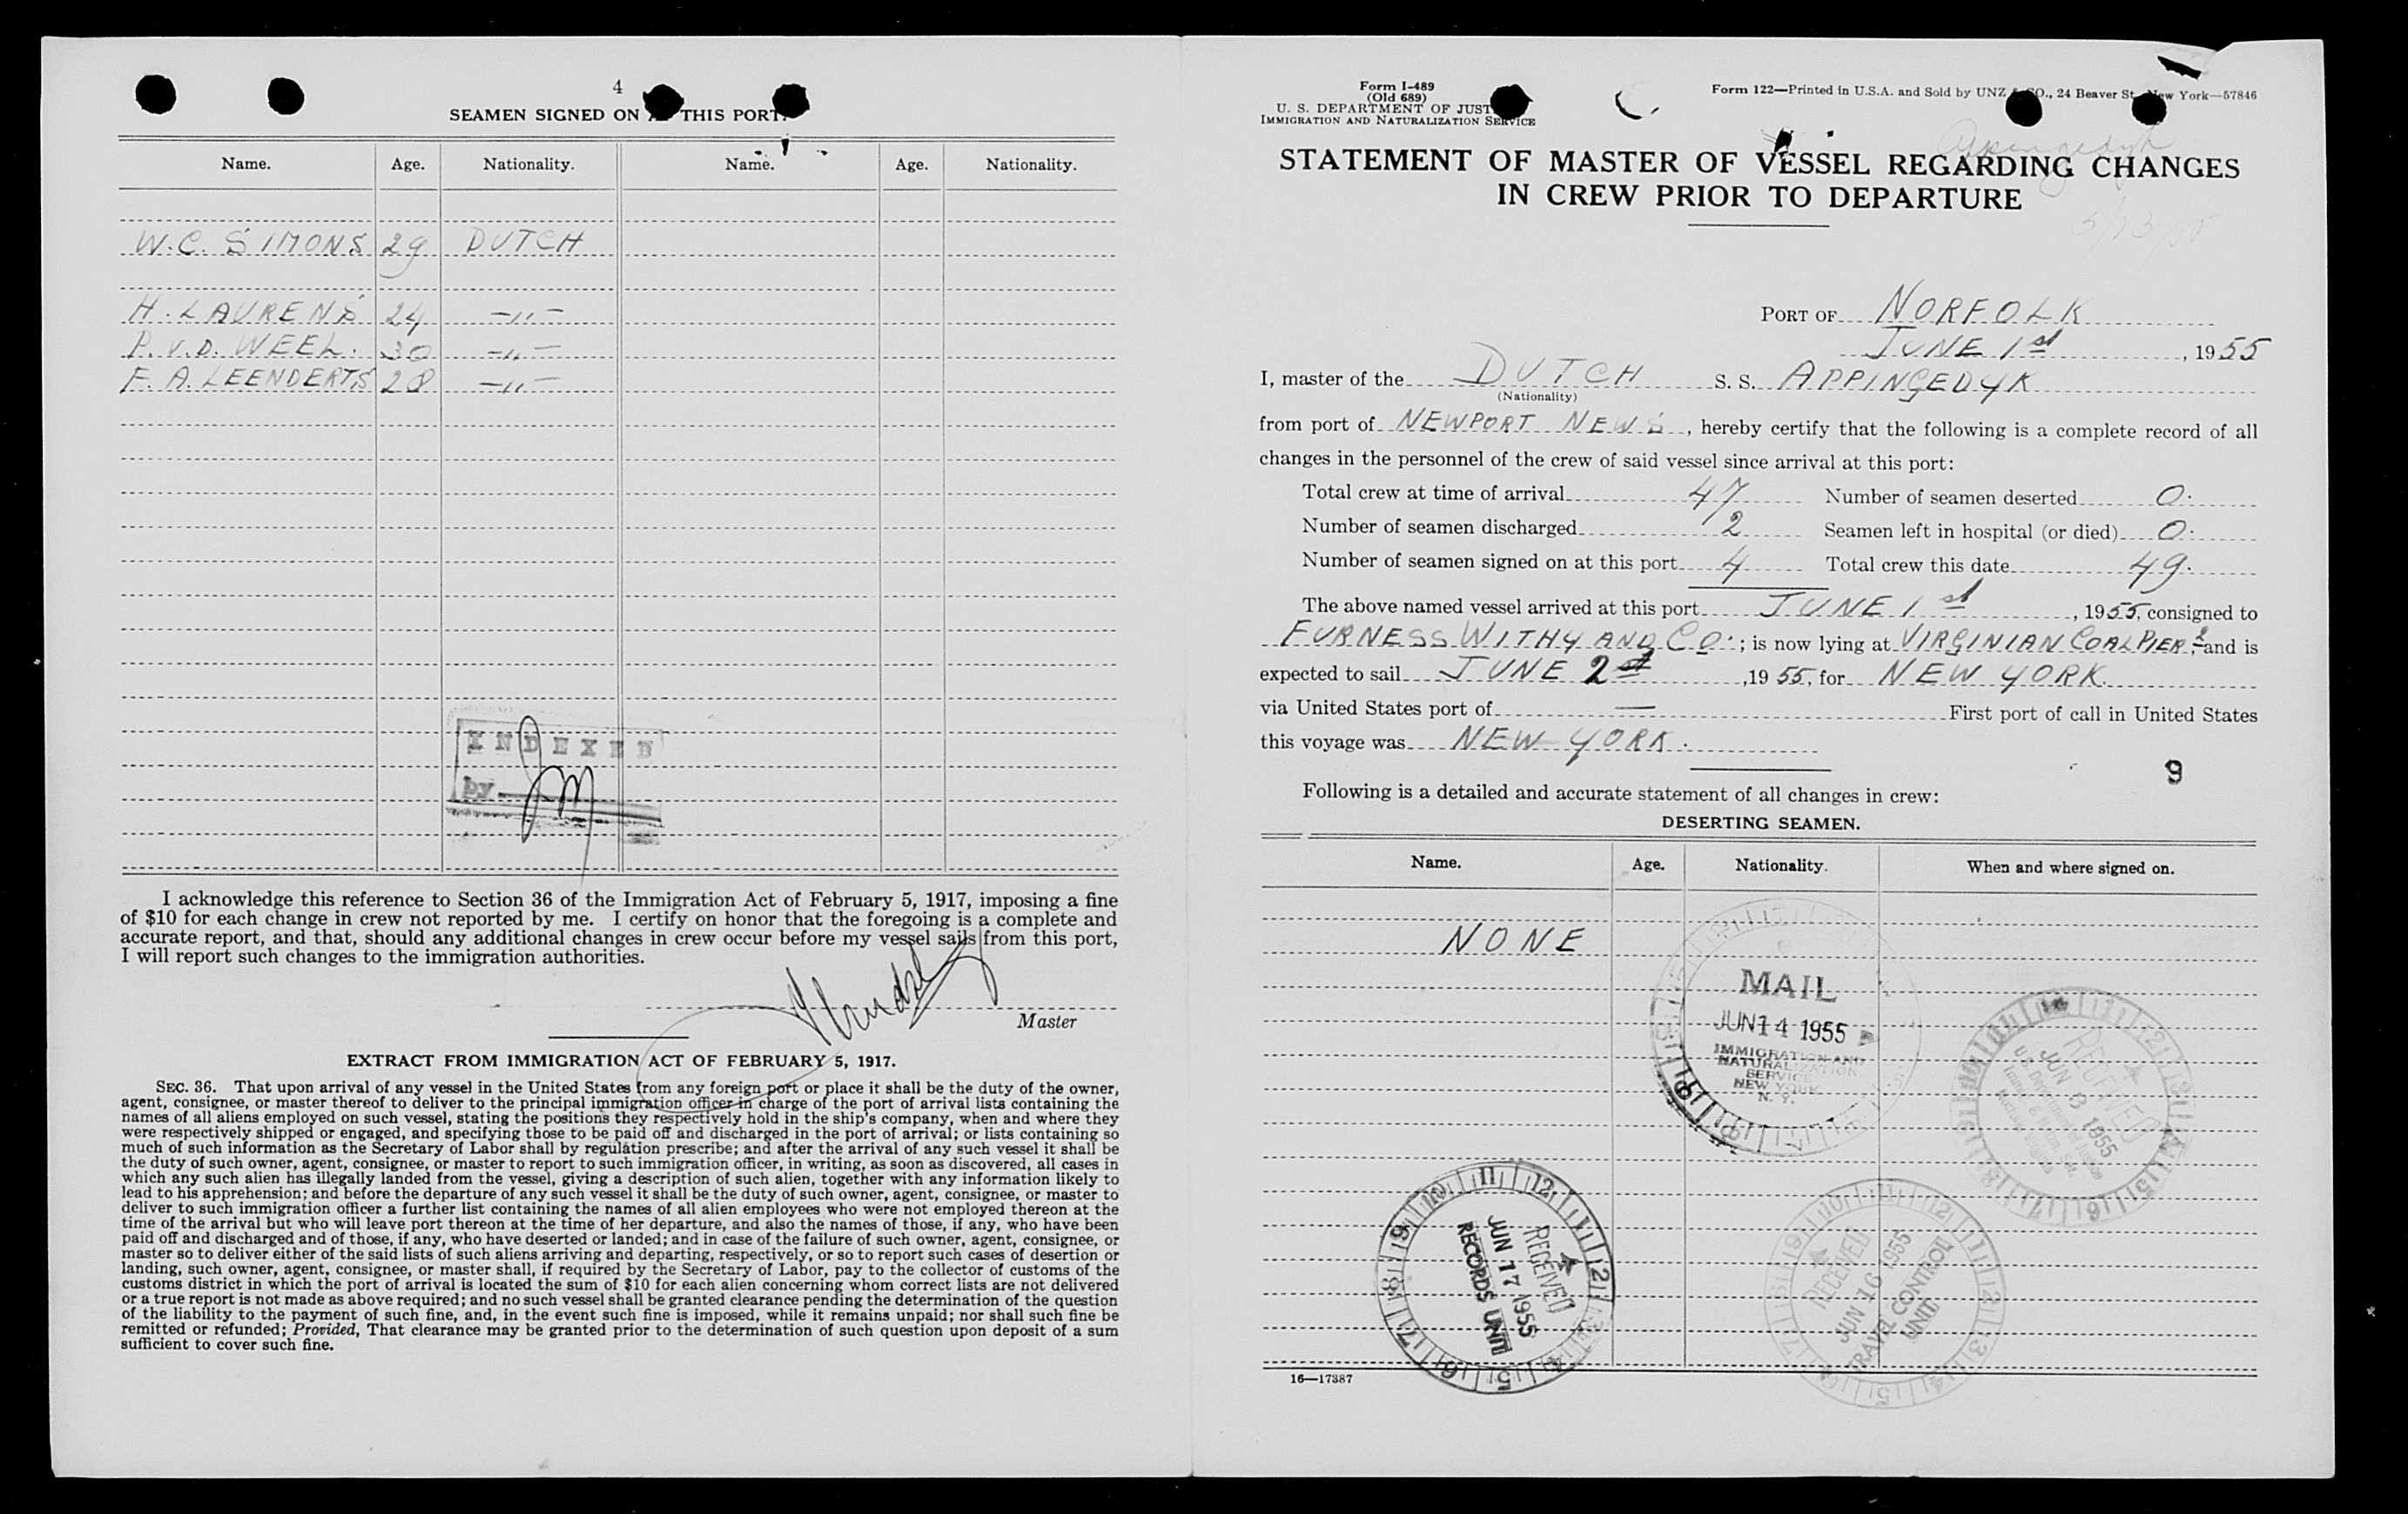 4
SEAMEN SIGNED ON AT THIS PORT.
Name. Age. Nationality. Name. Age. Nationality.
W. C. SIMONS 29 DUTCH
H. LAURENS 24 —〃—
P. V. D. WEEL. 30 —〃—
F. A. LEENDERTS 28 —〃—
INDEXED
by JM
I acknowledge this reference to Section 36 of the Immigration Act of February 5, 1917, imposing a fine
of $10 for each change in crew not reported by me. I certify on honor that the foregoing is a complete and
accurate report, and that, should any additional changes in crew occur before my vessel sails from this port,
I will report such changes to the immigration authorities.
Master
EXTRACT FROM IMMIGRATION ACT OF FEBRUARY 5, 1917.
SEC. 36. That upon arrival of any vessel in the United States from any foreign port or place it shall be the duty of the owner,
agent, consignee, or master thereof to deliver to the principal immigration officer in charge of the port of arrival lists containing the
names of all aliens employed on such vessel, stating the positions they respectively hold in the ship's company, when and where they
were respectively shipped or engaged, and specifying those to be paid off and discharged in the port of arrival; or lists containing so
much of such information as the Secretary of Labor shall by regulation prescribe; and after the arrival of any such vessel it shall be
the duty of such owner, agent, consignee, or master to report to such immigration officer, in writing, as soon as discovered, all cases in
which any such alien has illegally landed from the vessel, giving a description of such alien, together with any information likely to
lead to his apprehension; and before the departure of any such vessel it shall be the duty of such owner, agent, consignee, or master to
deliver to such immigration officer a further list containing the names of all alien employees who were not employed thereon at the
time of the arrival but who will leave port thereon at the time of her departure, and also the names of those, if any, who have been
paid off and discharged and of those, if any, who have deserted or landed; and in case of the failure of such owner, agent, consignee, or
master so to deliver either of the said lists of such aliens arriving and departing, respectively, or so to report such cases of desertion or
landing, such owner, agent, consignee, or master shall, if required by the Secretary of Labor, pay to the collector of customs of the
customs district in which the port of arrival is located the sum of $10 for each alien concerning whom correct lists are not delivered
or a true report is not made as above required; and no such vessel shall be granted clearance pending the determination of the question
of the liability to the payment of such fine, and, in the event such fine is imposed, while it remains unpaid; nor shall such fine be
remitted or refunded; Provided, That clearance may be granted prior to the determination of such question upon deposit of a sum
sufficient to cover such fine.
Form I-489
(Old 689)
U. S. DEPARTMENT OF JUSTICE
IMMIGRATION AND NATURALIZATION SERVICE
Form 122—Printed in U.S.A. and Sold by UNZ & CO., 24 Beaver St., New York—57846
Appingedyk
STATEMENT OF MASTER OF VESSEL REGARDING CHANGES
IN CREW PRIOR TO DEPARTURE
PORT OF NORFOLK
JUNE 1st, 1955
I, master of the DUTCH S. S. APPINGEDYK
(Nationality)
from port of NEWPORT NEWS, hereby certify that the following is a complete record of all
changes in the personnel of the crew of said vessel since arrival at this port:
Total crew at time of arrival 47 Number of seamen deserted 0.
Number of seamen discharged 2 Seamen left in hospital (or died) 0.
Number of seamen signed on at this port 4 Total crew this date 49.
The above named vessel arrived at this port JUNE 1st, 1955, consigned to
FURNESS WITHY AND CO.; is now lying at VIRGINIAN COAL PIER 2, and is
expected to sail JUNE 2st, 1955, for NEW YORK.
via United States port of — First port of call in United States
this voyage was NEW YORK.
9
Following is a detailed and accurate statement of all changes in crew:
DESERTING SEAMEN.
Name. Age. Nationality. When and where signed on.
NONE
MAIL
JUN 14 1955 P
IMMIGRATION AND
NATURALIZATION
SERVICE
NEW YORK
N. Y.
RECEIVED
JUN 3 1955
RECEIVED
JUN 17 1955
RECORDS UNIT
RECEIVED
JUN 16 1955
TRAVEL CONTROL
UNIT
16—17387